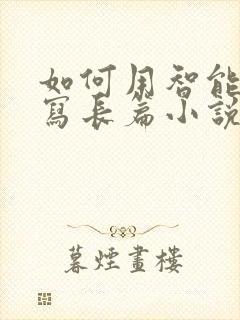 如何用智能
寫長篇小說
暮煙畫樓